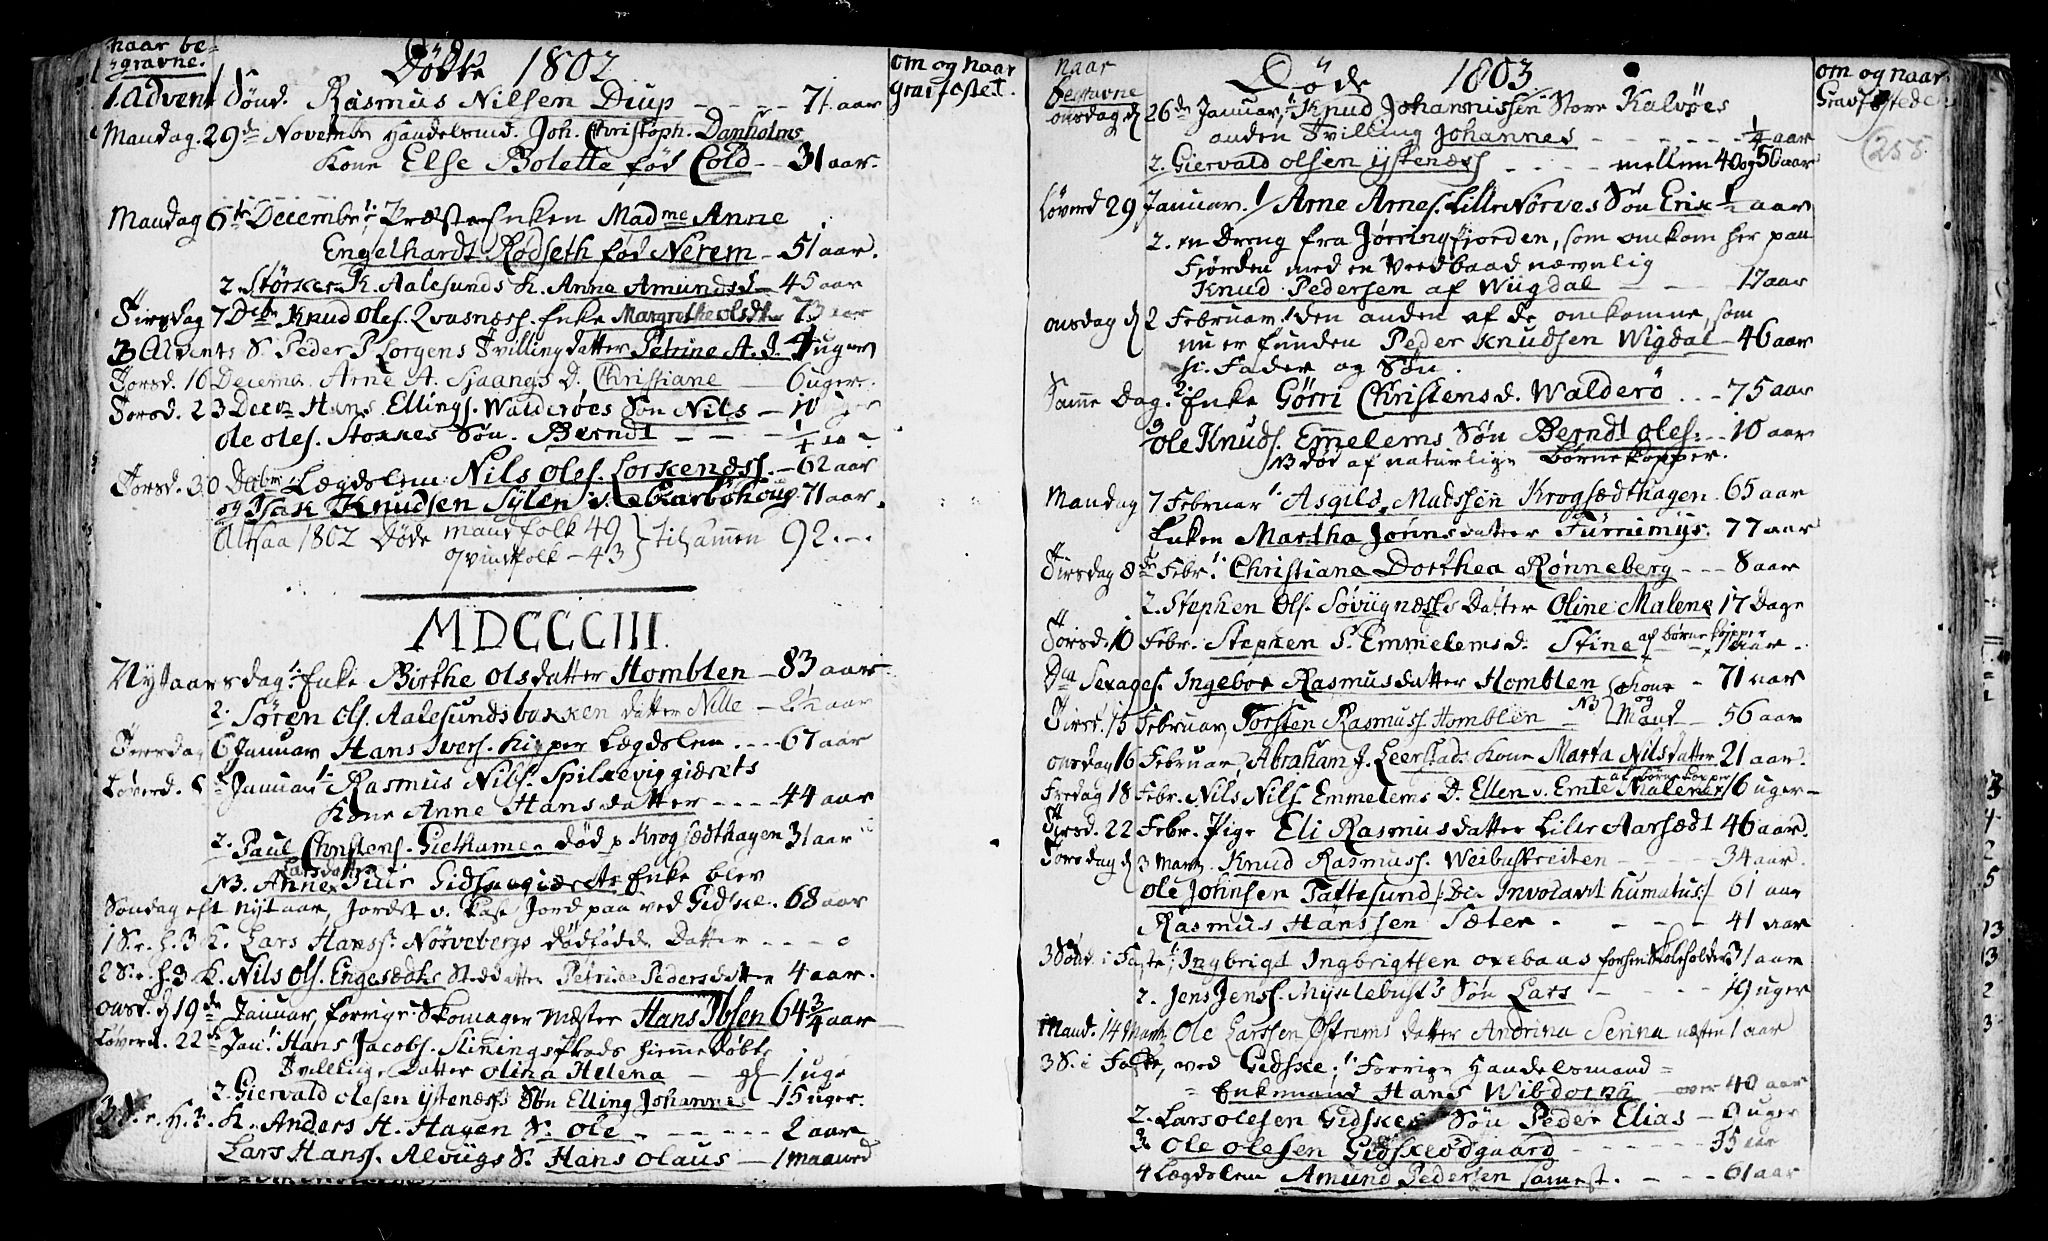 naar be=
gravne.
Døde 1802
om og naar
Graffæstet.
1. Advent Sønd. Rasmus Nilsen Diup - - - - 71 aar
Mandag. 29de November Handelsmd. Joh. Christoph. Danholms
Kone Else Bolette fød Cold - - 31 aar.
Mandag 6te Decembr: Præste Enken Madme Anne
Engelhardt Rødseth fød Nerem - 51 aar.
2. Størker K. Aalesunds K. Anne Amundsd - 45 aar
Tirsdag 7 Decbr Knud Oles. Qvasness. Enke Margrethe Olsdtr 73 aar
3 Advents S. Peder P. Lorgens Tvilling datter Petrine A. D. 4 uger
Torsd. 16 Decembr. Arne A. Sjaangs D. Christiane - 6 uger.
Torsd. 23 Decbr Hans Ellings. Walderøes Søn Nils - 10 uger
Ole Oles. Stokkes Søn. Berndt - - - 1/4 aar
Torsd. 30 Decbr Lægdslem Nils Oles. Lorkenæss. - 62 aar
og Isak Knudsen Sylen v. Garbohoug 71 aar.
Altsaa 1802 Døde mandfolk 49 } tilsammen 92 - -
qvindfolk - 43
MDCCCIII.
Nytaarsdag 1. Enke Birthe Olsdatter Homblen - 83 aar
2. Søren Ols. Aalesundsbakken datter Nille - 2½ aar
Torsdag 6 Januar Hans Ivers. Kipper Lægdslem. - - - 67 aar
Løverd. 8de Januar 1. Rasmus Nils. Spilkeviggierets
Kone Anne Hansdatter - - - - 44 aar
2. Paul Christens. Giethamen død p Krogsædthagen 31 aar
Larsdatter
NB. Anne Tuir Gidskegierets Enke blev
Søndag eft Nytaar, Jordet v. kast Jord paa ved Gidske. 68 aar
1 S. e. H. 3 K. Lars Hanss. Nørvebergs dødfødde Datter - - - 0
2 S. e. H. 3 K. Nils Ols. Engesedts Steddatter Petrine Pedersdatter 4 aar.
Onsd. d 19de Januar, forrige Skomager Mæster Hans Ibsen 64¾ aar
Løverd. 22de Jan: Hans Jacobs. Slinningsflods hiemmedøbte
Tvillling Datter Olina Helena - - 1 uge
2. Giervald Olesen Ystenæss Søn Elling Johannes 15 uger.
3 S. e. H. 3. K. Anders H. Hagen S. Ole - - - - - 2 aar
Lars Hanss. Alvügs S. Hans Olaus - 1 maaned
naar
begravne
Døde 1803.
om og naar
Graffæstede
255.
Onsdag d 26de Januar, 1. Knud Johannissen Store Kalvøes
anden Tvilling Johannes - - - - - - 1/4 aar
2. Giervald Olsen Ystenæss - - - - mellem 40 og 50 aar
Løverd 29 Januar. 1/ Arne Arnes. Lille Nørves Søn Erik ½ aar
2. en Dreng fra Jørringfjorden, som omkom her paa
Fjorden med en Veedbaad nævnlig
Knud Pedersen af Wiigdal - - - 17 aar
Onsdag d 2 Februar. 1 den anden af de omkomne, som
nu er funden Peder Knudsen Wigdal - 46 aar
sc. Fader og Søn.
Samme Dag. 2. Enke Gørri Christensd. Walderö - - - 75 aar
3 Ole Knuds. Emmelems Søn Berndt Oles. - - 10 aar
NB død af naturlige Børnekopper.
Mandag 7 Februar 1. Asgild Madssen Krogsædthagen - 65 aar
Enken Martha Jonnsdatter Furrimys. 77 aar
Tirsdag 8de Febr. 1. Christiane Dorthea Rønneberg - - - 8 aar
2. Stephen Ols. Søviignæss Datter Oline Malene 17 Dage
Torsd. 10 Febr. Stephen P. Emmelems D. Stine af børnekopper 7 aar -
Dca Sexages. Ingebor Rasmusdatter Homblen } Kone - 71 aar
NB og
Tirsd. 15 Februar, Torsten Rasmuss Homblen - Mand - 56 aar
Onsdag 16 Februar Abraham J. Leerstads Kone Marta Nilsdatter 21 aar.
af børnekopper
Fredag 18 Febr. Nils Nils. Emmelems D. Ellen v. Emte Malene 16 uger -
Tirsd. 22 Febr. Pige Eli Rasmusdatter Lille Aarsædt 46 aar.
Torsdag d 3 Marti Knud Rasmuss. Weibustreiten - - - 34 aar.
Ole Johnsen Taftesund /: Dca Invocavit humatus:/ 61 aar
Rasmus Hanssen Sæter - - - - - 41 aar
3 Sønd. i Faste, 1. Ingbrigt Ingbrigtsen Oxebaas forhen Skoleholder 31 aar
2. Jens Jenss. Myklebust's Søn Lars - - - - 19 uger
Mand. 14 Marti Ole Larssen Østrems datter Andrina Serina næsten 1 aar
3 S. i Faste, ved Gidske, 1. Forrige Handelsmand=
= Enkemand Hans Wibdorph over 40 aar
2. Lars Olesen Gidskes Søn Peder Elias - 9 uger
3 Ole Olesen Gidskeødgaard - - - - - 35 aar
4 Lægdslem Amund Pedersen samest. - - - 61 aar